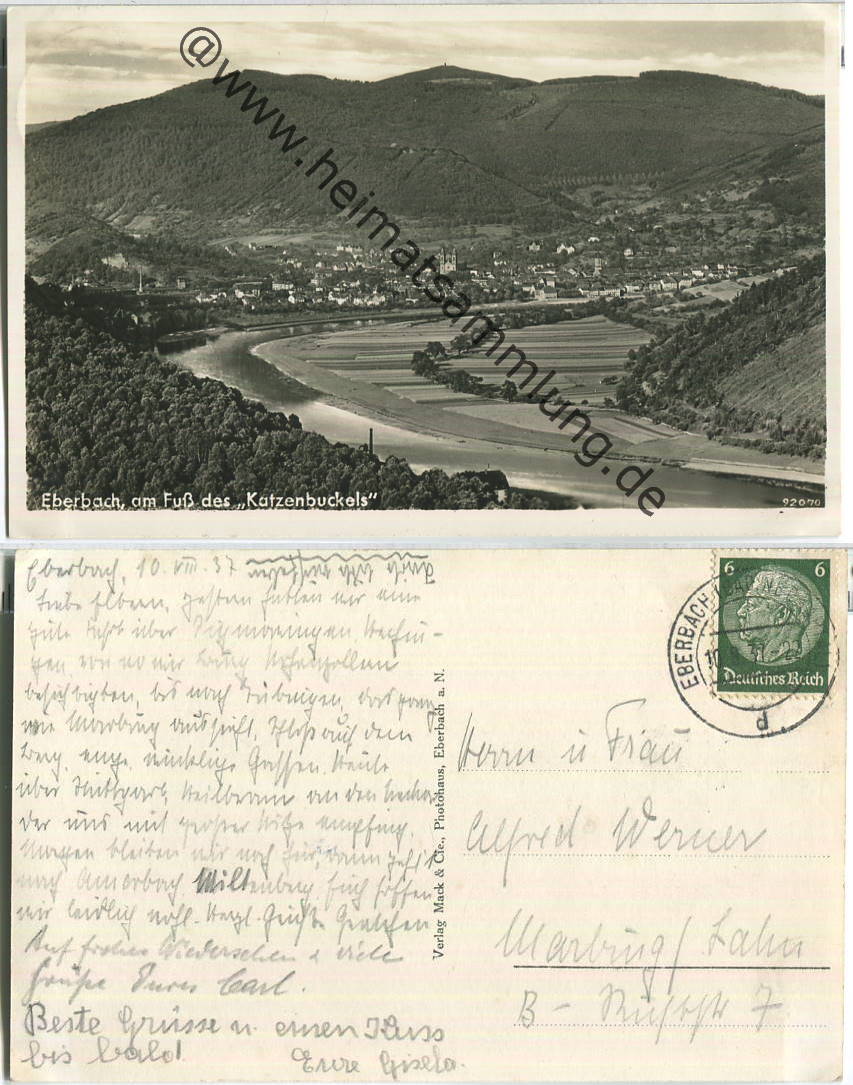 @www.heimatsammlung.de
Eberbach, am Fuß des „Katzenbuckels"
92070
Eberbach, 10. VIII. 37
Liebe Eltern, gestern hatten wir eine
gute Fahrt über Sigmaringen, Hechin-
gen von wo wir Burg Hohenzollern
besichtigten, bis nach Tübingen, das ganz
wie Marburg aussieht, Schloß auf dem
Berg, enge winklige Gassen. Heute
über Stuttgart, Heilbronn an den Neckar
der uns mit großer Hitze empfing.
Morgen bleiben wir noch hier, dann geht's
nach Amorbach, Miltenberg.
wir leidlich wohl. Herzl. Grüße Gretchen
Auf frohes Wiedersehen u viele
Grüße Euer Carl.
Beste Grüsse u. einen Kuss
bis bald! Eure Gisela.
Verlag Mack & Cie., Photohaus, Eberbach a. N.
EBERBACH
d
6 6
Deutsches Reich
Herrn u Frau
Alfred Werner
Marburg / Lahn
B - 7